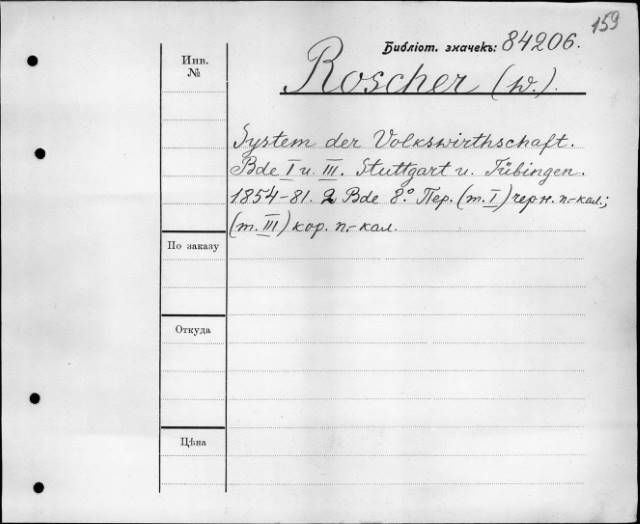 159
Библіот. значекъ: 84206.
Инв.
№
Roscher (W.).
System der Volkswirthschaft.
Bde I u. III. Stuttgart u. Tübingen.
1854-81. 2 Bde 8.° Пер. (т. I) черн. п.-кал.;
(т. III) кор. п.-кал.
По заказу
Откуда
Цѣна